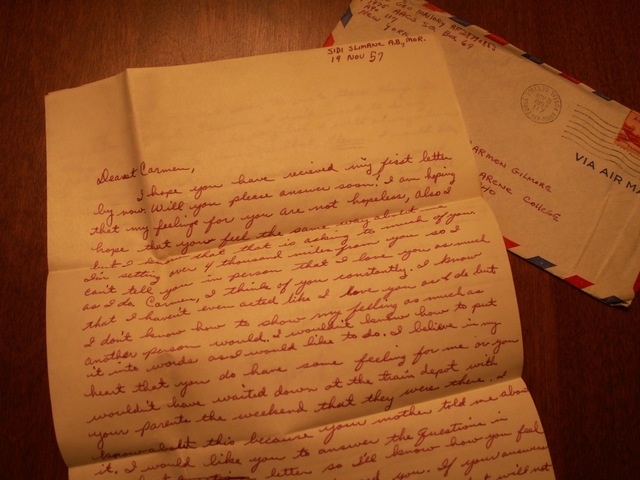 SIDI SLIMANE A.B., MOR.
19 NOV 57
Dearest Carmen,
I hope you have recieved my first letter
by now. Will you please answer soon? I am hoping
that my feelings for you are not hopeless, also I
hope that you feel the same way about
but I know that that is asking to much of you
I'm setting over 4 thousand miles from you so I
can't tell you in person that I love you as much
as I do. Carmen, I think of you constantly. I know
that I haven't even acted like I love you as I do but
I don't know how to show my feeling as much as
another person would. I wouldn't know how to put
it into words as I would like to do. I believe in my
heart that you do have some feeling for me or you
wouldn't have waited down at the train depot with
your parents the weekend that they were there. I
know about this because your mother told me about
it. I would like you to answer the questions in
letter so I'll know how you feel
you. If your answers
will not
NEW YORK
VIA AIR MA
ARMEN GILMORE
ARENE COLLEGE